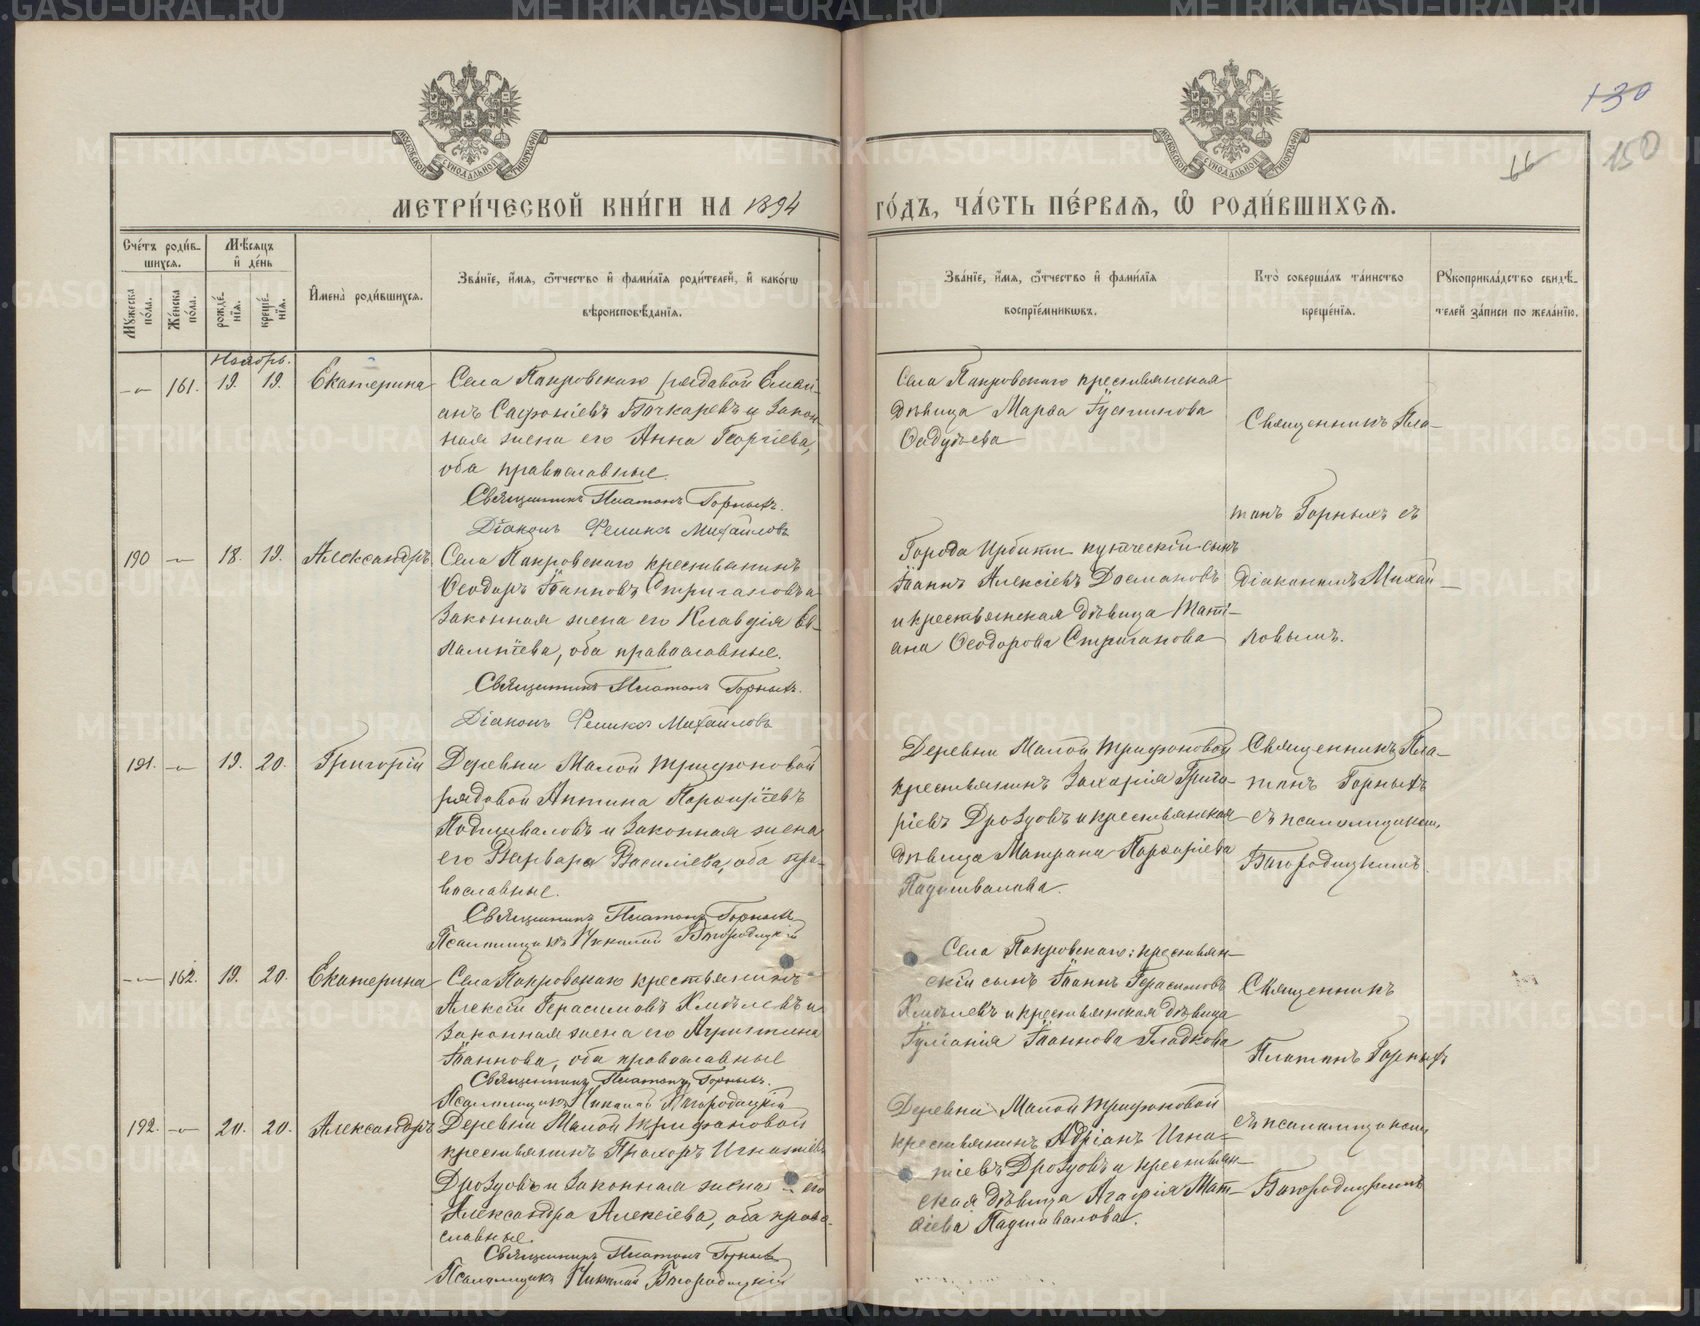 130
66
150
МОСКОВСКОЙ СѴНОДАЛЬНОЙ ТИПОГРАФІИ
МОСКОВСКОЙ СѴНОДАЛЬНОЙ ТИПОГРАФІИ
МЕТРИ́ЧЕСКОЙ КНИ́ГИ НА 1894 ГО́ДЪ, ЧА́СТЬ ПЕ́РВАѦ, Ѡ҆ РОДИ́ВШИХСѦ.
Сче́тъ роди́в-
шихсѧ.
Мѣ́сѧцъ
и҆ де́нь
Мꙋ́жеска по́ла.
Же́нска по́ла.
рожде́-
нїѧ.
креще́-
нїѧ.
И҆мена̀ роди́вшихсѧ.
Зва́нїе, и҆́мѧ, ѻ҆́тчество и҆ фами́лїѧ роди́телей, и҆ како́гѡ
вѣроисповѣ́данїѧ.
Зва́нїе, и҆́мѧ, ѻ҆́тчество и҆ фами́лїѧ
воспрїе́мникѡвъ.
Кто̀ соверша́лъ та́инство
креще́нїѧ.
Рꙋкоприкла́дство свидѣ́-
телей за́писи по жела́нїю.
Ноябрь.
161. 19. 19. Екатерина
Села Покровскаго рядовой Емел-
анъ Сафоніевъ Бочкаревъ и закон-
ная жена его Анна Георгіева,
оба православные.
Священникъ Платонъ Горныхъ.
Діаконъ Феликсъ Михайловъ
Села Покровскаго крестьянская
дѣвица Марѳа Іустинова
Священникъ Пла-
тонъ Горныхъ съ
діакономъ Михай-
ловымъ.
190 18. 19. Александръ
Села Покровскаго крестьянинъ
Ѳеодоръ Іоанновъ Стригановъ и
законная жена его Клавдія Ев-
лампіева, оба православные.
Священникъ Платонъ Горныхъ.
Діаконъ Феликсъ Михайловъ
Города Ирбити купческій сынъ
Іоаннъ Алексіевъ Досмановъ
и крестьянская дѣвица Таті-
ана Ѳеодорова Стриганова
191. 19. 20. Григорій
Деревни Малой Трифоновой
рядовой Антипа Порфиріевъ
Подшиваловъ и законная жена
его Варвара Василіева, оба пра-
вославные.
Священникъ Платонъ Горныхъ
Псаломщикъ Николай Богородицкій
Деревни Малой Трифоновой
крестьянинъ Захарія Григо-
ріевъ Дроздовъ и крестьянская
дѣвица Матрона Порфиріева
Подшивалова.
Священникъ Пла-
тонъ Горныхъ
съ псаломщикомъ
Богородицкимъ.
162. 19. 20. Екатерина
Села Покровскаго крестьянинъ
Алексій Герасимовъ Хмѣлевъ и
законная жена его Агриппина
Іоаннова, оба православные
Священникъ Платонъ Горныхъ.
Псаломщикъ Николай Богородицкій
Села Покровскаго: крестьян-
скій сынъ Іоаннъ Герасимовъ
Хмѣлевъ и крестьянская дѣвица
Іуліанія Іоаннова Гладкова
Священникъ
Платонъ Горныхъ
съ псаломщикомъ
Богородицкимъ
192. 20. 20. Александръ
Деревни Малой Трифоновой
крестьянинъ Прохоръ Игнатіевъ
Дроздовъ и законная жена его
Александра Алексіева, оба право-
славные.
Священникъ Платонъ Горныхъ
Псаломщикъ Николай Богородицкій
Деревни Малой Трифоновой
крестьянинъ Адріанъ Игна-
тіевъ Дроздовъ и крестьян-
ская дѣвица Агафія Мат-
ѳіева Подшивалова.
METRIKI.GASO-URAL.RU